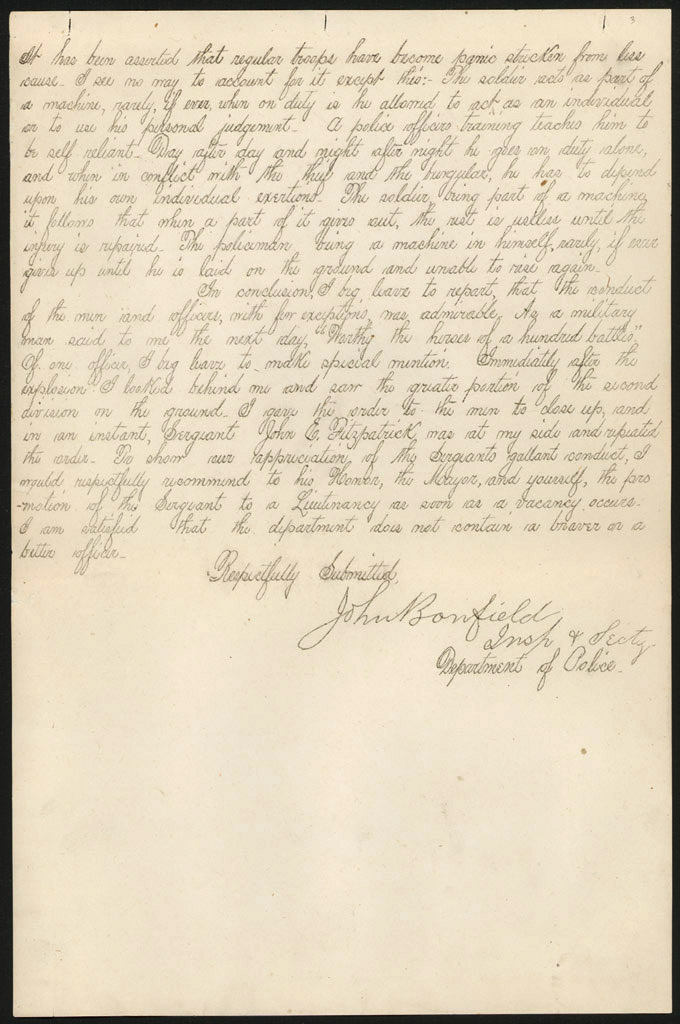 3
It has been asserted that regular troops have become panic stricken from less
cause- I see no way to account for it except this:- The soldier acts as part of
a machine, rarely, if ever, when on duty is he allowed to act as an individual
or to use his personal judgement- A police officers training teaches him to
be self reliant- Day after day and night after night he goes on duty alone,
and when in conflict with the thief and the burgular, he has to depend
upon his own individual exertions- The soldier being part of a machine,
it follows that when a part of it gives out, the rest is useless until the
injury is repayred- The policeman being a machine in himself, rarely, if ever
gives up until he is laid on the ground and unable to rise again-
In conclusion, I beg leave to report, that the conduct
of the men and officers, with few exceptions, was admirable- As a military
man said to me the next day, "Worthy the heroes of a hundred battles."
Of one officer, I beg leave to make special mention. Immediately after the
explosion I looked behind me and saw the greater portion of the second
division on the ground- I gave the order to the men to close up, and
in an instant, Sergeant John E. Fitzpatrick was at my side and repeated
the order- To show our appreciation of the Sergeants gallant conduct, I
would respectfully recommend to his Honor, the Mayor, and yourself, the pro
-motion of the Sergeant to a Lieutenancy as soon as a vacancy occurs-
I am satisfied that the department does not contain a braver or a
better officer-
Respectfully Submitted,
John Bonfield
Insp & Secty
Department of Police-